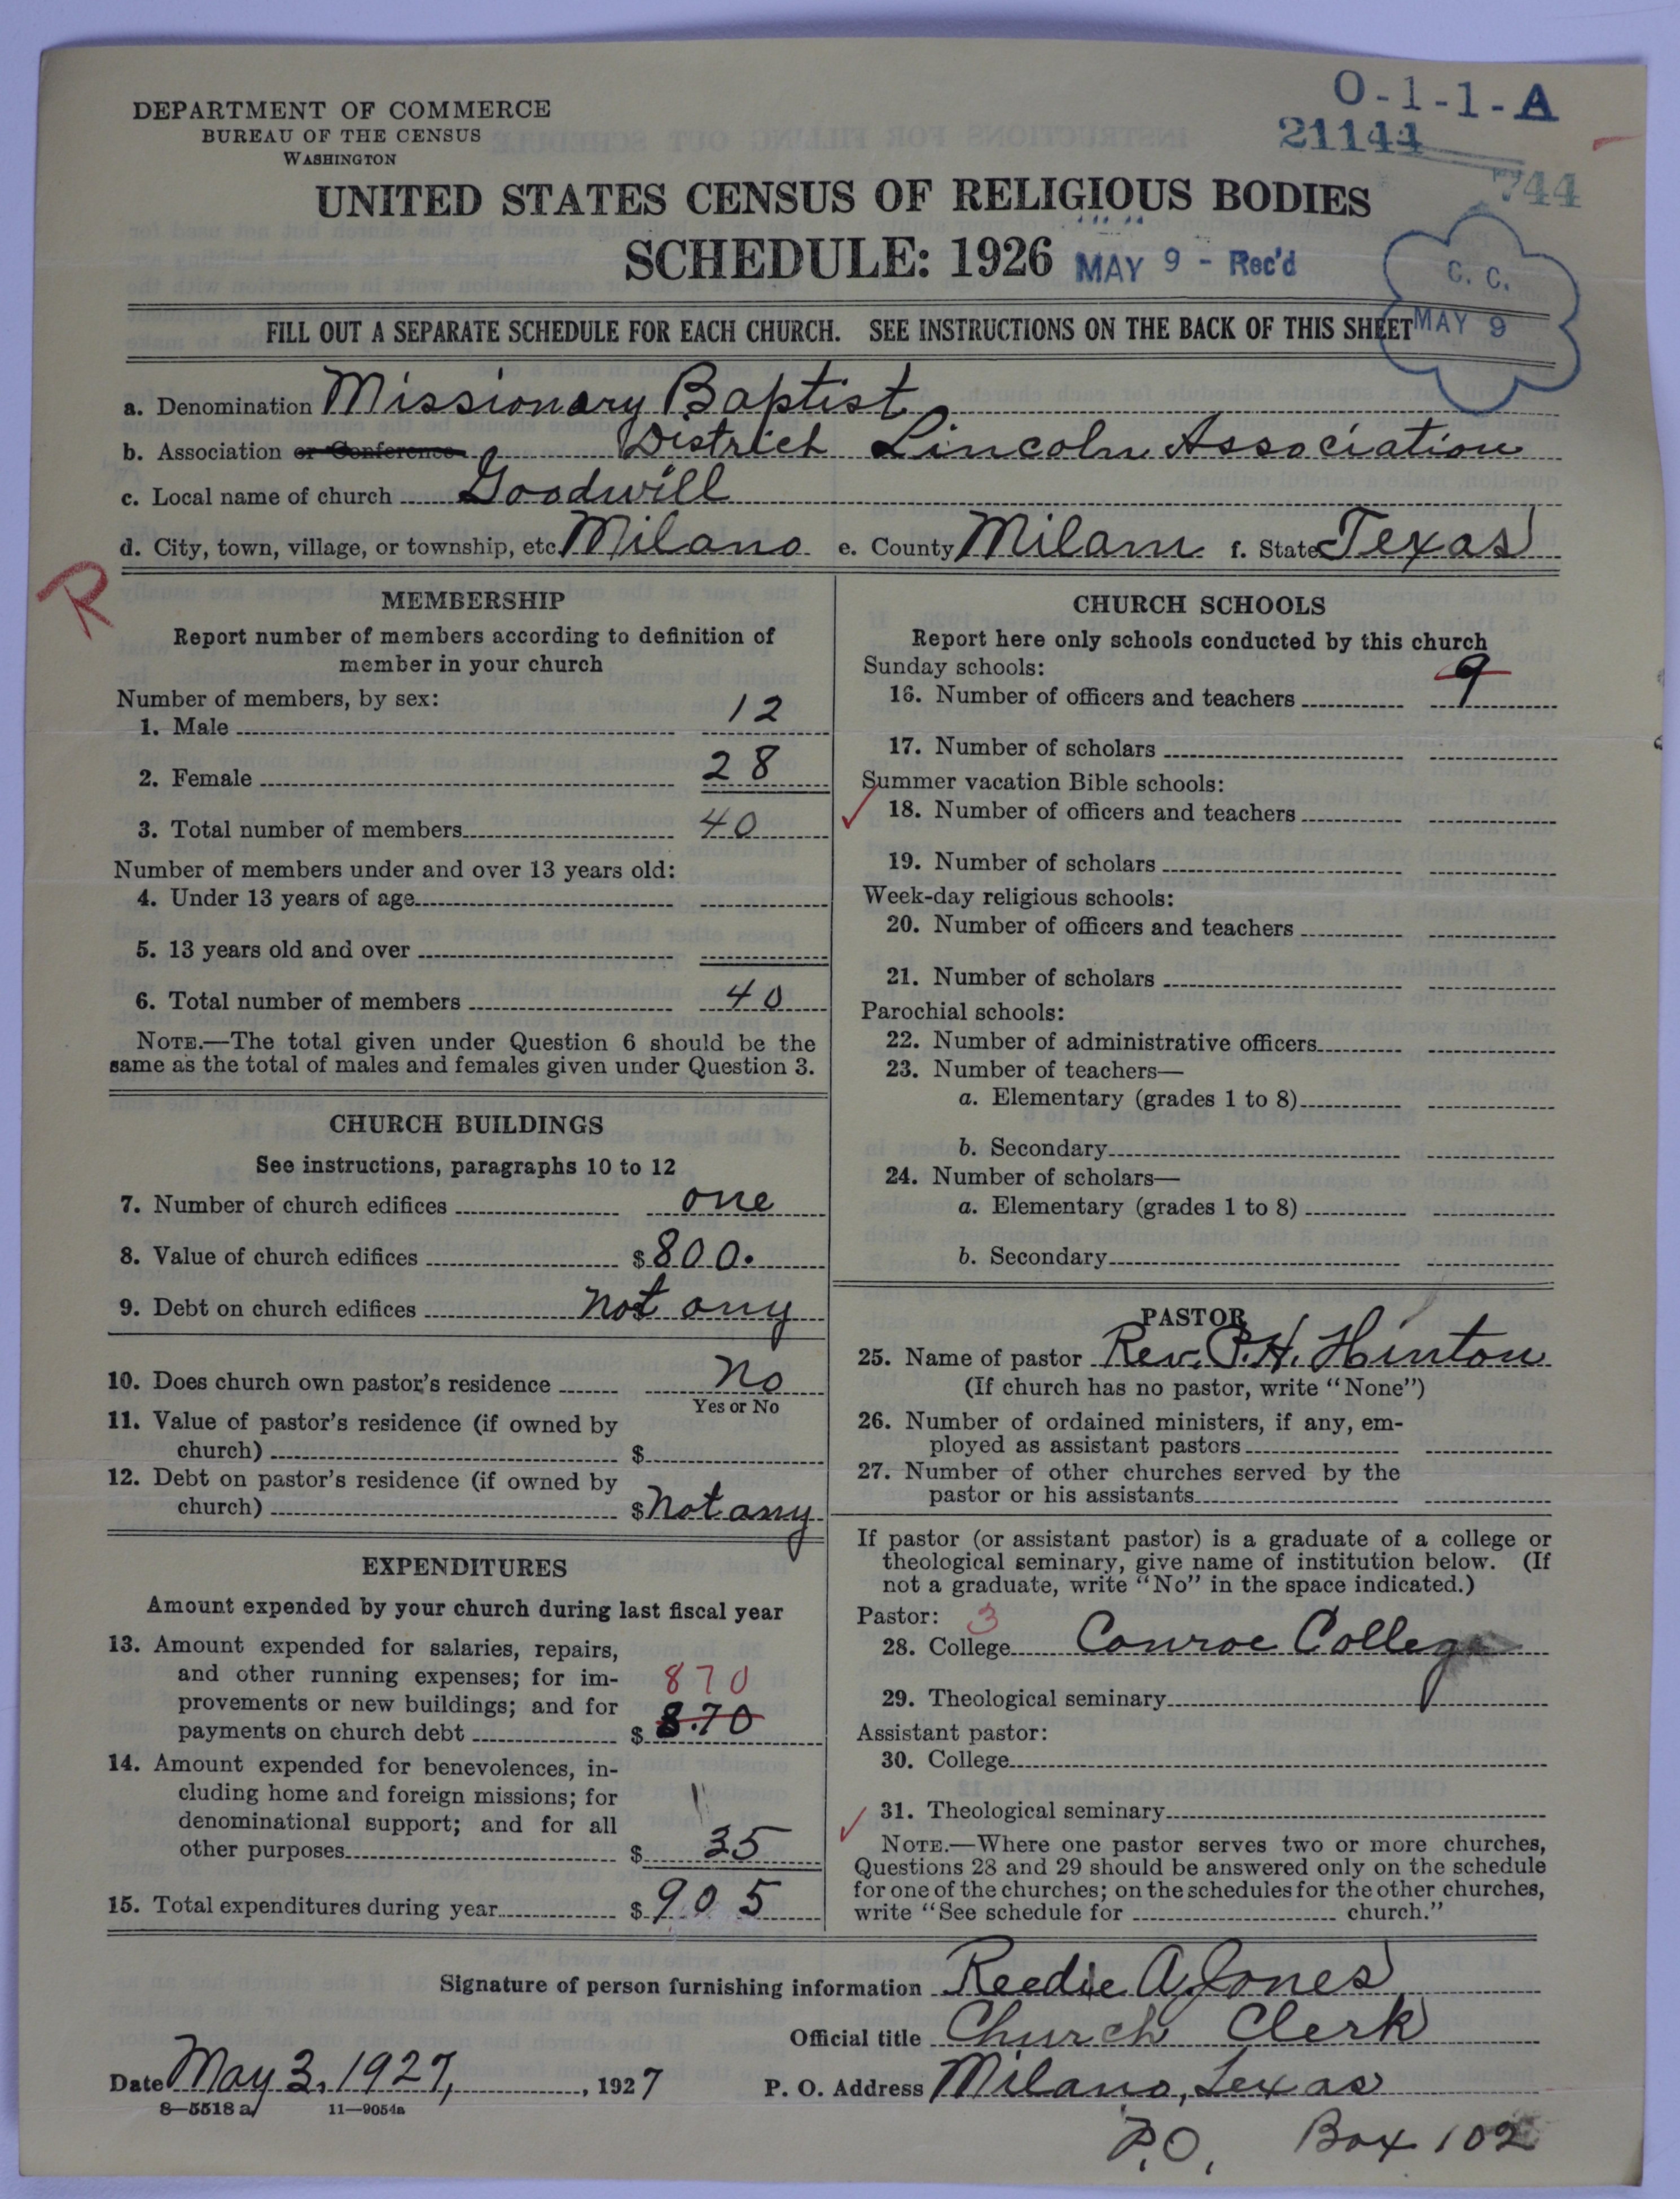 O-1-1-A
DEPARTMENT OF COMMERCE
BUREAU OF THE CENSUS
WASHINGTON
21144
744
UNITED STATES CENSUS OF RELIGIOUS BODIES
SCHEDULE: 1926
MAY 9 - Rec'd
C. C.
MAY 9
FILL OUT A SEPARATE SCHEDULE FOR EACH CHURCH. SEE INSTRUCTIONS ON THE BACK OF THIS SHEET
a. Denomination Missionary Baptist
b. Association or Conference District Lincoln Association
c. Local name of church Goodwill
d. City, town, village, or township, etc. Milano e. County Milam f. State Texas
R
MEMBERSHIP
Report number of members according to definition of
member in your church
Number of members, by sex:
1. Male 12
2. Female 28
3. Total number of members 40
Number of members under and over 13 years old:
4. Under 13 years of age
5. 13 years old and over
6. Total number of members 40
NOTE.—The total given under Question 6 should be the
same as the total of males and females given under Question 3.
CHURCH BUILDINGS
See instructions, paragraphs 10 to 12
7. Number of church edifices one
8. Value of church edifices $800.
9. Debt on church edifices not any
10. Does church own pastor's residence No
Yes or No
11. Value of pastor's residence (if owned by
church) $
12. Debt on pastor's residence (if owned by
church) $ not any
EXPENDITURES
Amount expended by your church during last fiscal year
13. Amount expended for salaries, repairs,
and other running expenses; for im-
provements or new buildings; and for
870
payments on church debt $ 8.70
14. Amount expended for benevolences, in-
cluding home and foreign missions; for
denominational support; and for all
other purposes $ 35
15. Total expenditures during year $ 905
CHURCH SCHOOLS
Report here only schools conducted by this church
Sunday schools:
16. Number of officers and teachers 9
17. Number of scholars
Summer vacation Bible schools:
18. Number of officers and teachers
19. Number of scholars
Week-day religious schools:
20. Number of officers and teachers
21. Number of scholars
Parochial schools:
22. Number of administrative officers
23. Number of teachers—
a. Elementary (grades 1 to 8)
b. Secondary
24. Number of scholars—
a. Elementary (grades 1 to 8)
b. Secondary
PASTOR
25. Name of pastor Rev. P. H. Hinton
(If church has no pastor, write "None")
26. Number of ordained ministers, if any, em-
ployed as assistant pastors
27. Number of other churches served by the
pastor or his assistants
If pastor (or assistant pastor) is a graduate of a college or
theological seminary, give name of institution below. (If
not a graduate, write "No" in the space indicated.)
Pastor: 3
28. College Conroe College
29. Theological seminary
Assistant pastor:
30. College
31. Theological seminary
NOTE.—Where one pastor serves two or more churches,
Questions 28 and 29 should be answered only on the schedule
for one of the churches; on the schedules for the other churches,
write "See schedule for church."
Signature of person furnishing information Reedie A Jones
Official title Church Clerk
Date May 3, 1927, , 1927 P. O. Address Milano, Texas
8—5518 a 11—9054a
P.O. Box 102